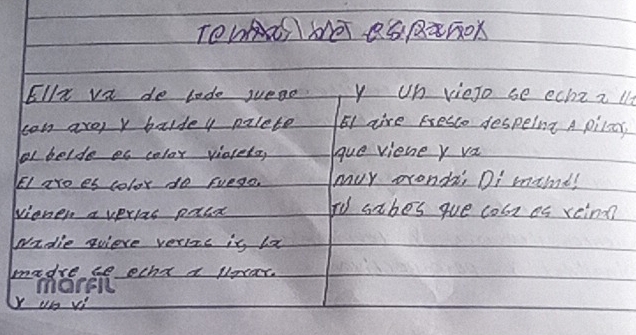 Ella va de todo juego
con aro, y balde y paleta
el belde es color violeta,
El aro es color do Fuego.
vienen a verlas pasa
Nadie quiere verlas ir, la
madre se echa a llorar.
Y un vi
MARFIL
Y un viejo se echa a lla
El aire Fresco despeina A pilar,
que viene y va
muy oronda, Di mama!
TU sabes que cosa es reina